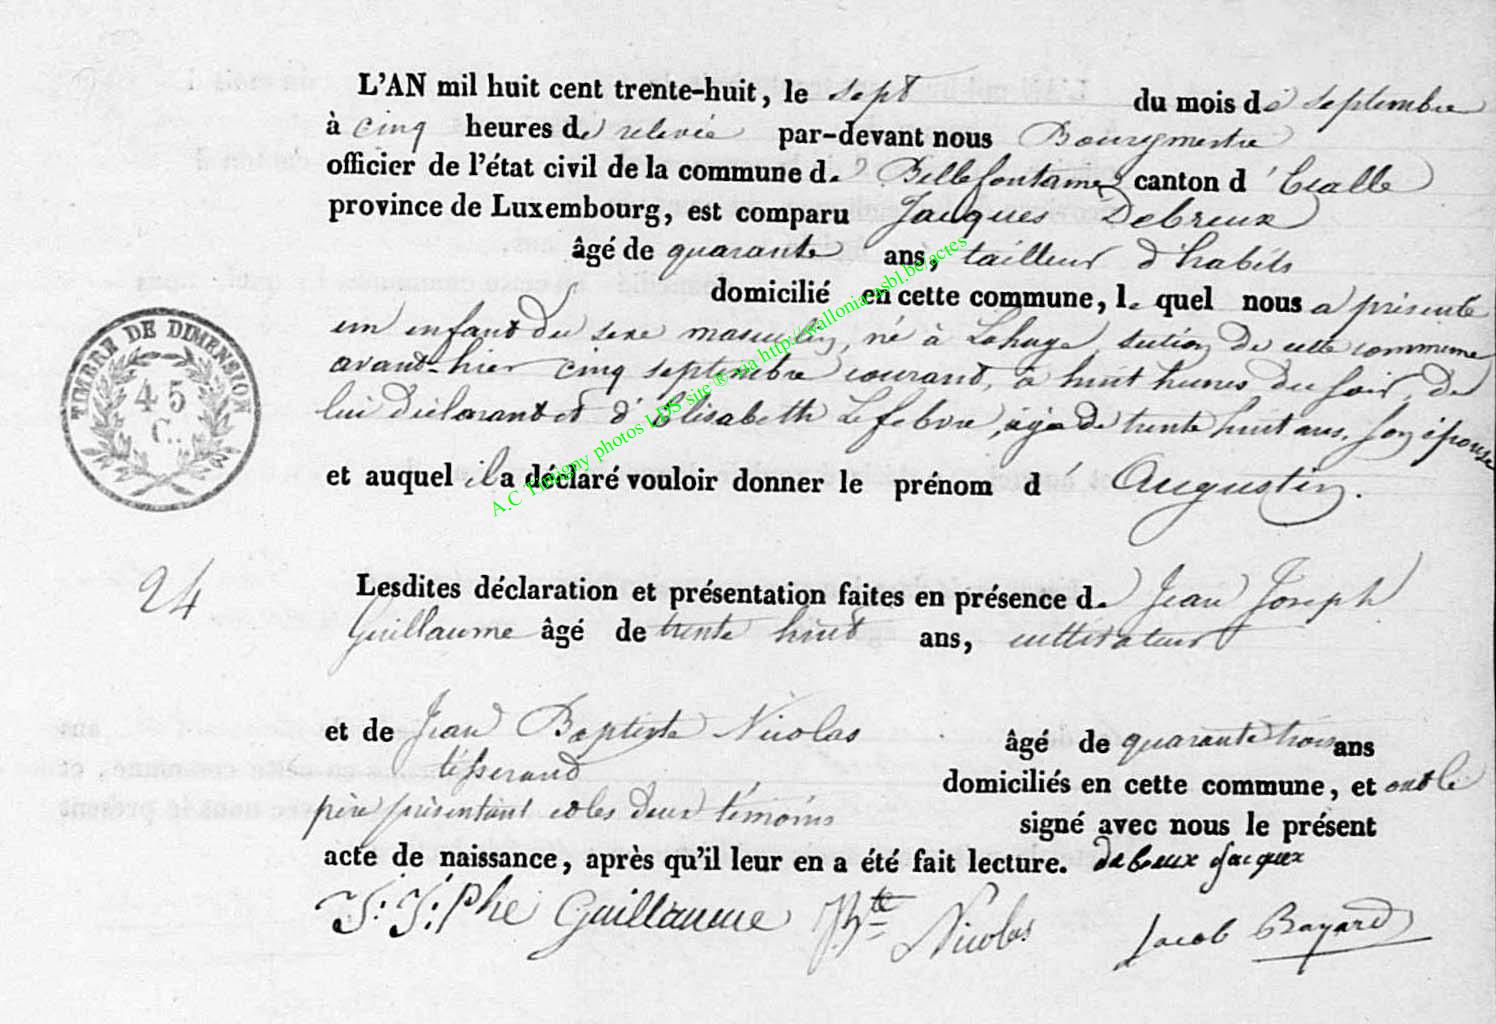 L'AN mil huit cent trente-huit, le sept du mois de septembre
à cinq heures de relevée par-devant nous Bourgmestre
officier de l'état civil de la commune de Bellefontaine canton d'Etalle
province de Luxembourg, est comparu Jacques Debreux
âgé de quarante ans, tailleur d'habits
domicilié en cette commune, lequel nous a présenté
un enfant du sexe masculin, né à Lahage, section de cette commune
avant-hier cinq septembre courant, à huit heures du soir, de
lui déclarant et d'Elisabeth Lefebvre, agée de trente huit ans, son épouse
et auquel il a déclaré vouloir donner le prénom d'Augustin.
TIMBRE DE DIMENSION
45
C.
A.C Tintigny photos LDS site ® via http://wallonia-asbl.be/actes
24
Lesdites déclaration et présentation faites en présence de Jean Joseph
Guillaume âgé de trente huit ans, cultivateur
et de Jean Baptiste Nicolas âgé de quarante trois ans
tisserand domiciliés en cette commune, et ont le
père présentant et les deux témoins signé avec nous le présent
acte de naissance, après qu'il leur en a été fait lecture. debreux Jacques
J: J:phe Guillaume JBte Nicolas Jacob Bayard